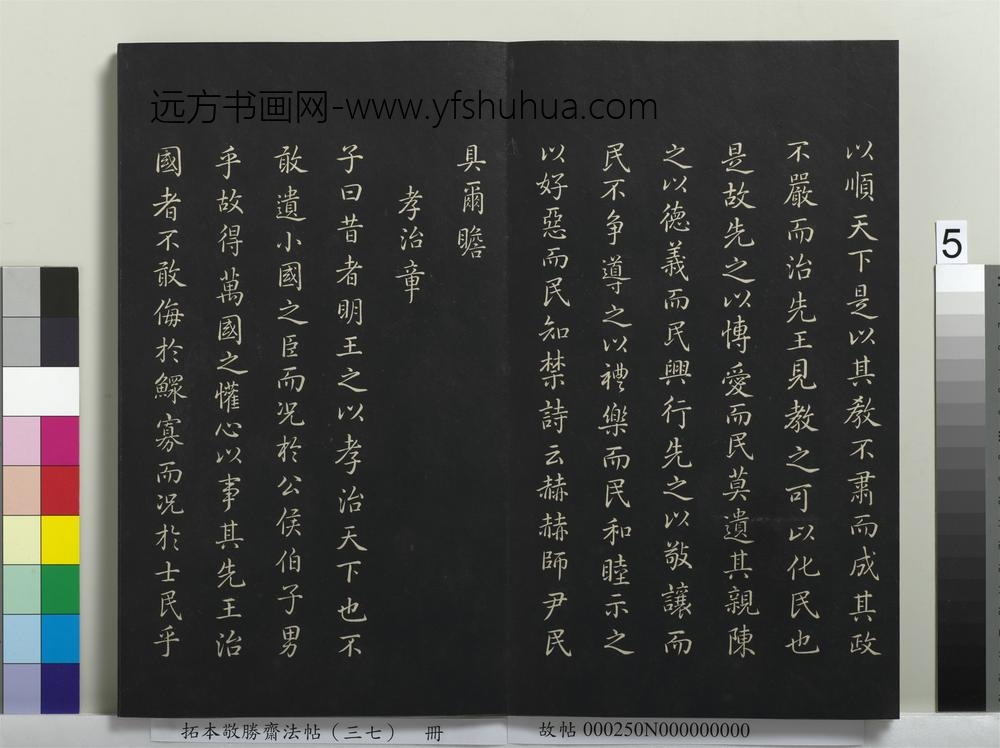 远方书画网-www.yfshuhua.com
以順天下是以其教不肅而成其政
不嚴而治先王見教之可以化民也
是故先之以博愛而民莫遺其親陳
之以德義而民興行先之以敬讓而
民不爭導之以禮樂而民和睦示之
以好惡而民知禁詩云赫赫師尹民
具爾瞻
孝治章
子曰昔者明王之以孝治天下也不
敢遺小國之臣而况於公侯伯子男
乎故得萬國之懽心以事其先王治
國者不敢侮於鰥寡而况於士民乎
5
拓本敬勝齋法帖（三七） 冊
故帖 000250N000000000